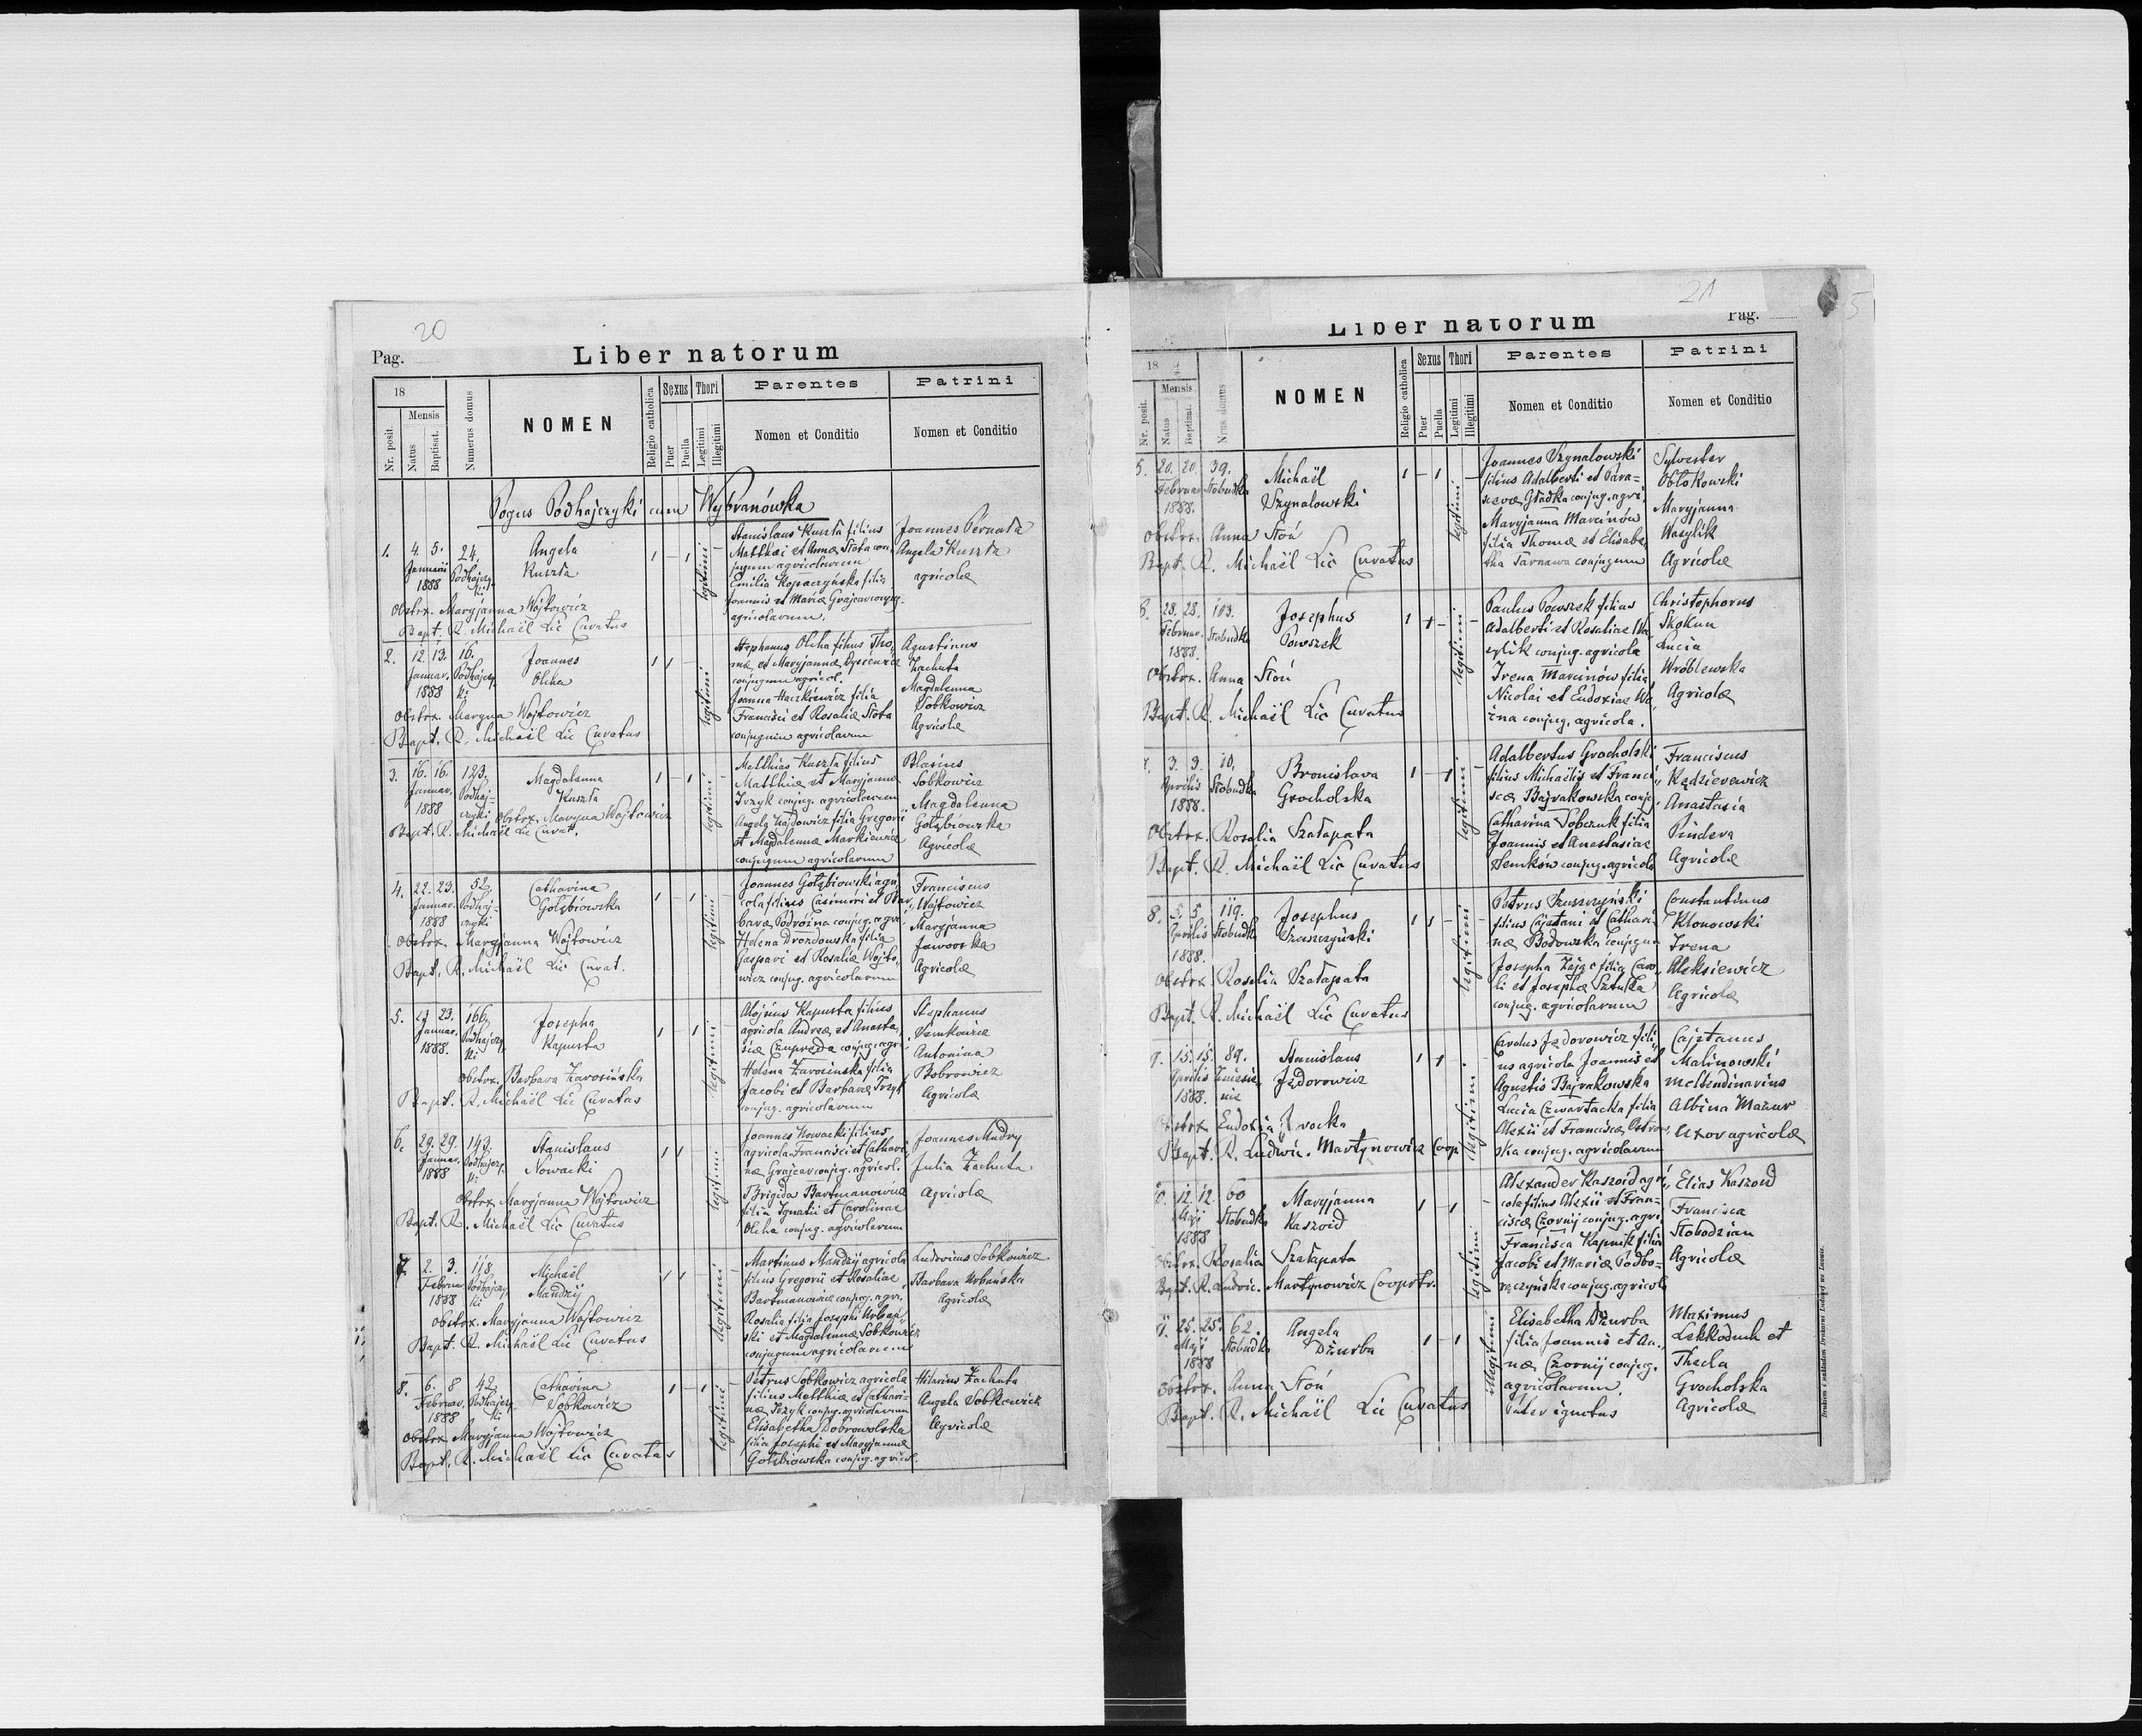 20
Pag.
Liber natorum
18
Nr. posit.
Mensis
Natus
Baptisat.
Numerus domus
NOMEN
Religio catholica
Sexus
Puer
Puella
Thori
Legitimi
Illegitimi
Parentes
Nomen et Conditio
Patrini
Nomen et Conditio
Pogus Podhajczyki cum Wybranówka
1. 4. 5. 24.
Januarii
1888
Angela
Kuszta
1 - 1
legitimi
Stanislaus Kuszta filius
Matthæi et Annæ Słota con
jugum agricolarum
Emilia Kopaczyńska filia
Joannis et Mariæ Grajcar conjug.
agricolarum.
Joannes Pernata
Angela Kuszta
agricolæ
Obstrx. Maryjanna Wojtowicz
Bapt. R. Michaël Lic Curatus
2. 12. 13. 16.
Januar.
1888
Joannes
Olcha
1 1 -
legitimi
Stephanus Olcha filius Tho
mæ et Maryjannæ
conjugum agricol.
Joanna Haczkiewicz filia
Francisci et Rosaliæ Słota
conjugum agricolarum
Agustinus
Zachuta
Magdalenna
Sobkowicz
Agricolæ
Obstrx. Maryna Wojtowicz
Bapt. R. Michaël Lic Curatus
3. 16. 16. 123.
Januar.
1888
Podhaj-
czyki
Magdalenna
Kuszta
1 - 1
legitimi
Matthias Kuszta filius
Matthiæ et Maryjannæ
conjug. agricolarum
Angela Hajdowicz filia Gregorii
et Magdalennæ Markiewicz
conjugum agricolarum
Blasius
Sobkowicz
Magdalenna
Gołębiowska
Agricolæ
Obstrx. Maryna Wojtowicz
Bapt. R. Michaël Lic Curat.
4. 22. 23. 52.
Januar.
1888
Podhaj-
czyki
Catharina
Gołębiowska
1 - 1
legitimi
Joannes Gołębiowski agri
cola filius Casimiri et Bar
baræ Podróżna conjug. agri
Helena Drozdowska filia
Gaspari et Rosaliæ Wojto
wicz conjug. agricolarum
Franciscus
Wojtowicz
Maryjanna
Jaworska
Agricolæ
Obstrx. Maryjanna Wojtowicz
Bapt. R. Michaël Lic Curat.
5. 23. 166.
Januar.
1888.
Josepha
Kapusta
1 - 1
legitimi
Alojsius Kapusta filius
agricola Andreæ et Anasta
siæ Czupręda conjug. agri
Helena Zarosinska filia
Jacobi et Barbaræ
conjug. agricolarum
Stephanus
Semkowicz
Antonina
Bobrowicz
Agricolæ
Obstrx. Barbara Zarosińska
Bapt. R. Michaël Lic Curatus
6. 29. 29. 143.
Januar.
1888
Stanislaus
Nowacki
1 1 -
legitimi
Joannes Nowacki filius
agricola Francisci et Cathari
næ Grajcar conjug. agricol.
Brigida Bartmanowicz
filia Ignatii et Carolinae
Olcha conjug. agricolarum
Joannes Mudry
Julia Zachuta
Agricolæ
Obstrx. Maryjanna Wojtowicz
Bapt. R. Michaël Lic Curatus
7. 2. 3. 118.
Februar
1888
Michaël
Mandzij
1 1 -
legitimi
Martinus Mandzij agricola
filius Gregorii et Rosaliae
Bartmanowicz conjug. agri.
Rosalia filia Josephi Urbań
ski et Magdalennæ Sobkowicz
conjugum agricolarum
Ludovicus Sobkowicz
Barbara Urbańska
Agricolæ
Obstrx. Maryjanna Wojtowicz
Bapt. R. Michaël Lic Curatus
8. 6. 8 42.
Februar.
1888
Catharina
Sobkowicz
1 - 1
legitimi
Petrus Sobkowicz agricola
filius Matthiæ et Cathari-
næ conjug. agricolarum
Elisabetha Dobrowolska
filia Josephi et Maryjannæ
Gołębiowska conjug. agricol.
Hilarius Zachuta
Angela Sobkowicz
Agricolæ
Obstrx. Maryjanna Wojtowicz
Bapt. R. Michaël Lic Curatus
21
5
Pag.
Liber natorum
18
Nr. posit.
Mensis
Natus
Baptisat.
Nrus domus
NOMEN
Religio catholica
Sexus
Puer
Puella
Thori
Legitimi
Illegitimi
Parentes
Nomen et Conditio
Patrini
Nomen et Conditio
5. 20. 20. 39.
Februar.
1888.
Słobudka
Michaël
Szynalowski
1 - 1
legitimi
Joannes Szynalowski
filius Adalberti et Para=
scevæ Gładka conjug. agri
Maryjanna Marcinów
filia Thomæ et Elisabe
tha Tarnawa conjugum
Sylvester
Obłokowski
Maryjanna
Wasylik
Agricolæ
Obstrx. Anna Stoń
Bapt. R. Michaël Lic Curatus
6. 28. 28. 103.
Februar.
1888.
Słobudka
Josephus
Powszek
1 1 -
legitimi
Paulus Powszek filius
Adalberti et Rosaliae Wa
sylik conjug. agricola
Irena Marcinów filia
Nicolai et Eudoxiae Wo
zna conjug. agricola.
Christophorus
Skokun
Lucia
Wróblewska
Agricolæ
Obstrx. Anna Stoń
Bapt. R. Michaël Lic Curatus
7. 3. 3. 10.
Aprilis
1888.
Słobudka
Bronislava
Grocholska
1 - 1
legitimi
Adalbertus Grocholski
filius Michaëlis et Franci
scæ Bajrakowska conj.
Catharina Sobczuk filia
Joannis et Anastasiae
Semków conjug. agricolæ
Franciscus
Kędzierewicz
Anastasia
Pindera
Agricolæ
Obstrx. Rosalia Szałapata
Bapt. R. Michaël Lic Curatus
8. 5. 5. 119.
Aprilis
1888.
Słobudka
Josephus
1 1 -
legitimi
Petrus
filius Cajetani et Cathari
næ Bodowska conjugum
Josepha Zając filia Caro
li et Josephæ Sztuka
conjug. agricolarum
Constantinus
Klonowski
Irena
Aleksiewicz
Agricolæ
Obstrx. Rosalia Szałapata
Bapt. R. Michaël Lic Curatus
9. 15. 15. 89.
Aprilis
1888.
Stanislaus
Fedorowicz
1 1 -
legitimi
Carolus Fedorowicz fili
us agricola Joannis et
Agnetis Bajrakowska
Lucia Czwartacka filia
Alexii et Franciscæ Ostrow
ska conjug. agricolarum
Cajetanus
Malinowski
Albina Mazur
Uxor agricolæ
Obstrx Eudoxia
Bapt. R. Ludwic. Martynowicz Coop
12. 12. 60
Maji
1888
Słobudka
Maryjanna
Kaszoid
1 - 1
legitimi
Alexander Kaszoid agri
cola filius Alexii et Fran=
ciscæ Czornij conjug. agri.
Francisca Kapnik filia
Jacobi et Mariæ Podho-
reczyńska conjug. agricolæ
Elias Kaszoid
Francisca
Słobodzian
Agricolæ
Obstrx. Rosalia Szałapata
Bapt. R. Ludvic. Martynowicz Cooprtr.
25. 25. 62.
Maji
1888
Słobudka
Angela
Dżurba
1 - 1
illegitimi
Elisabetha Dżurba
filia Joannis et An
næ Czornij conjug.
agricolarum.
Pater ignotus
Maximus
Lekkoduch et
Thecla
Grocholska
Agricolæ
Obstrx. Anna Stoń
Bapt. R. Michaël Lic Curatus